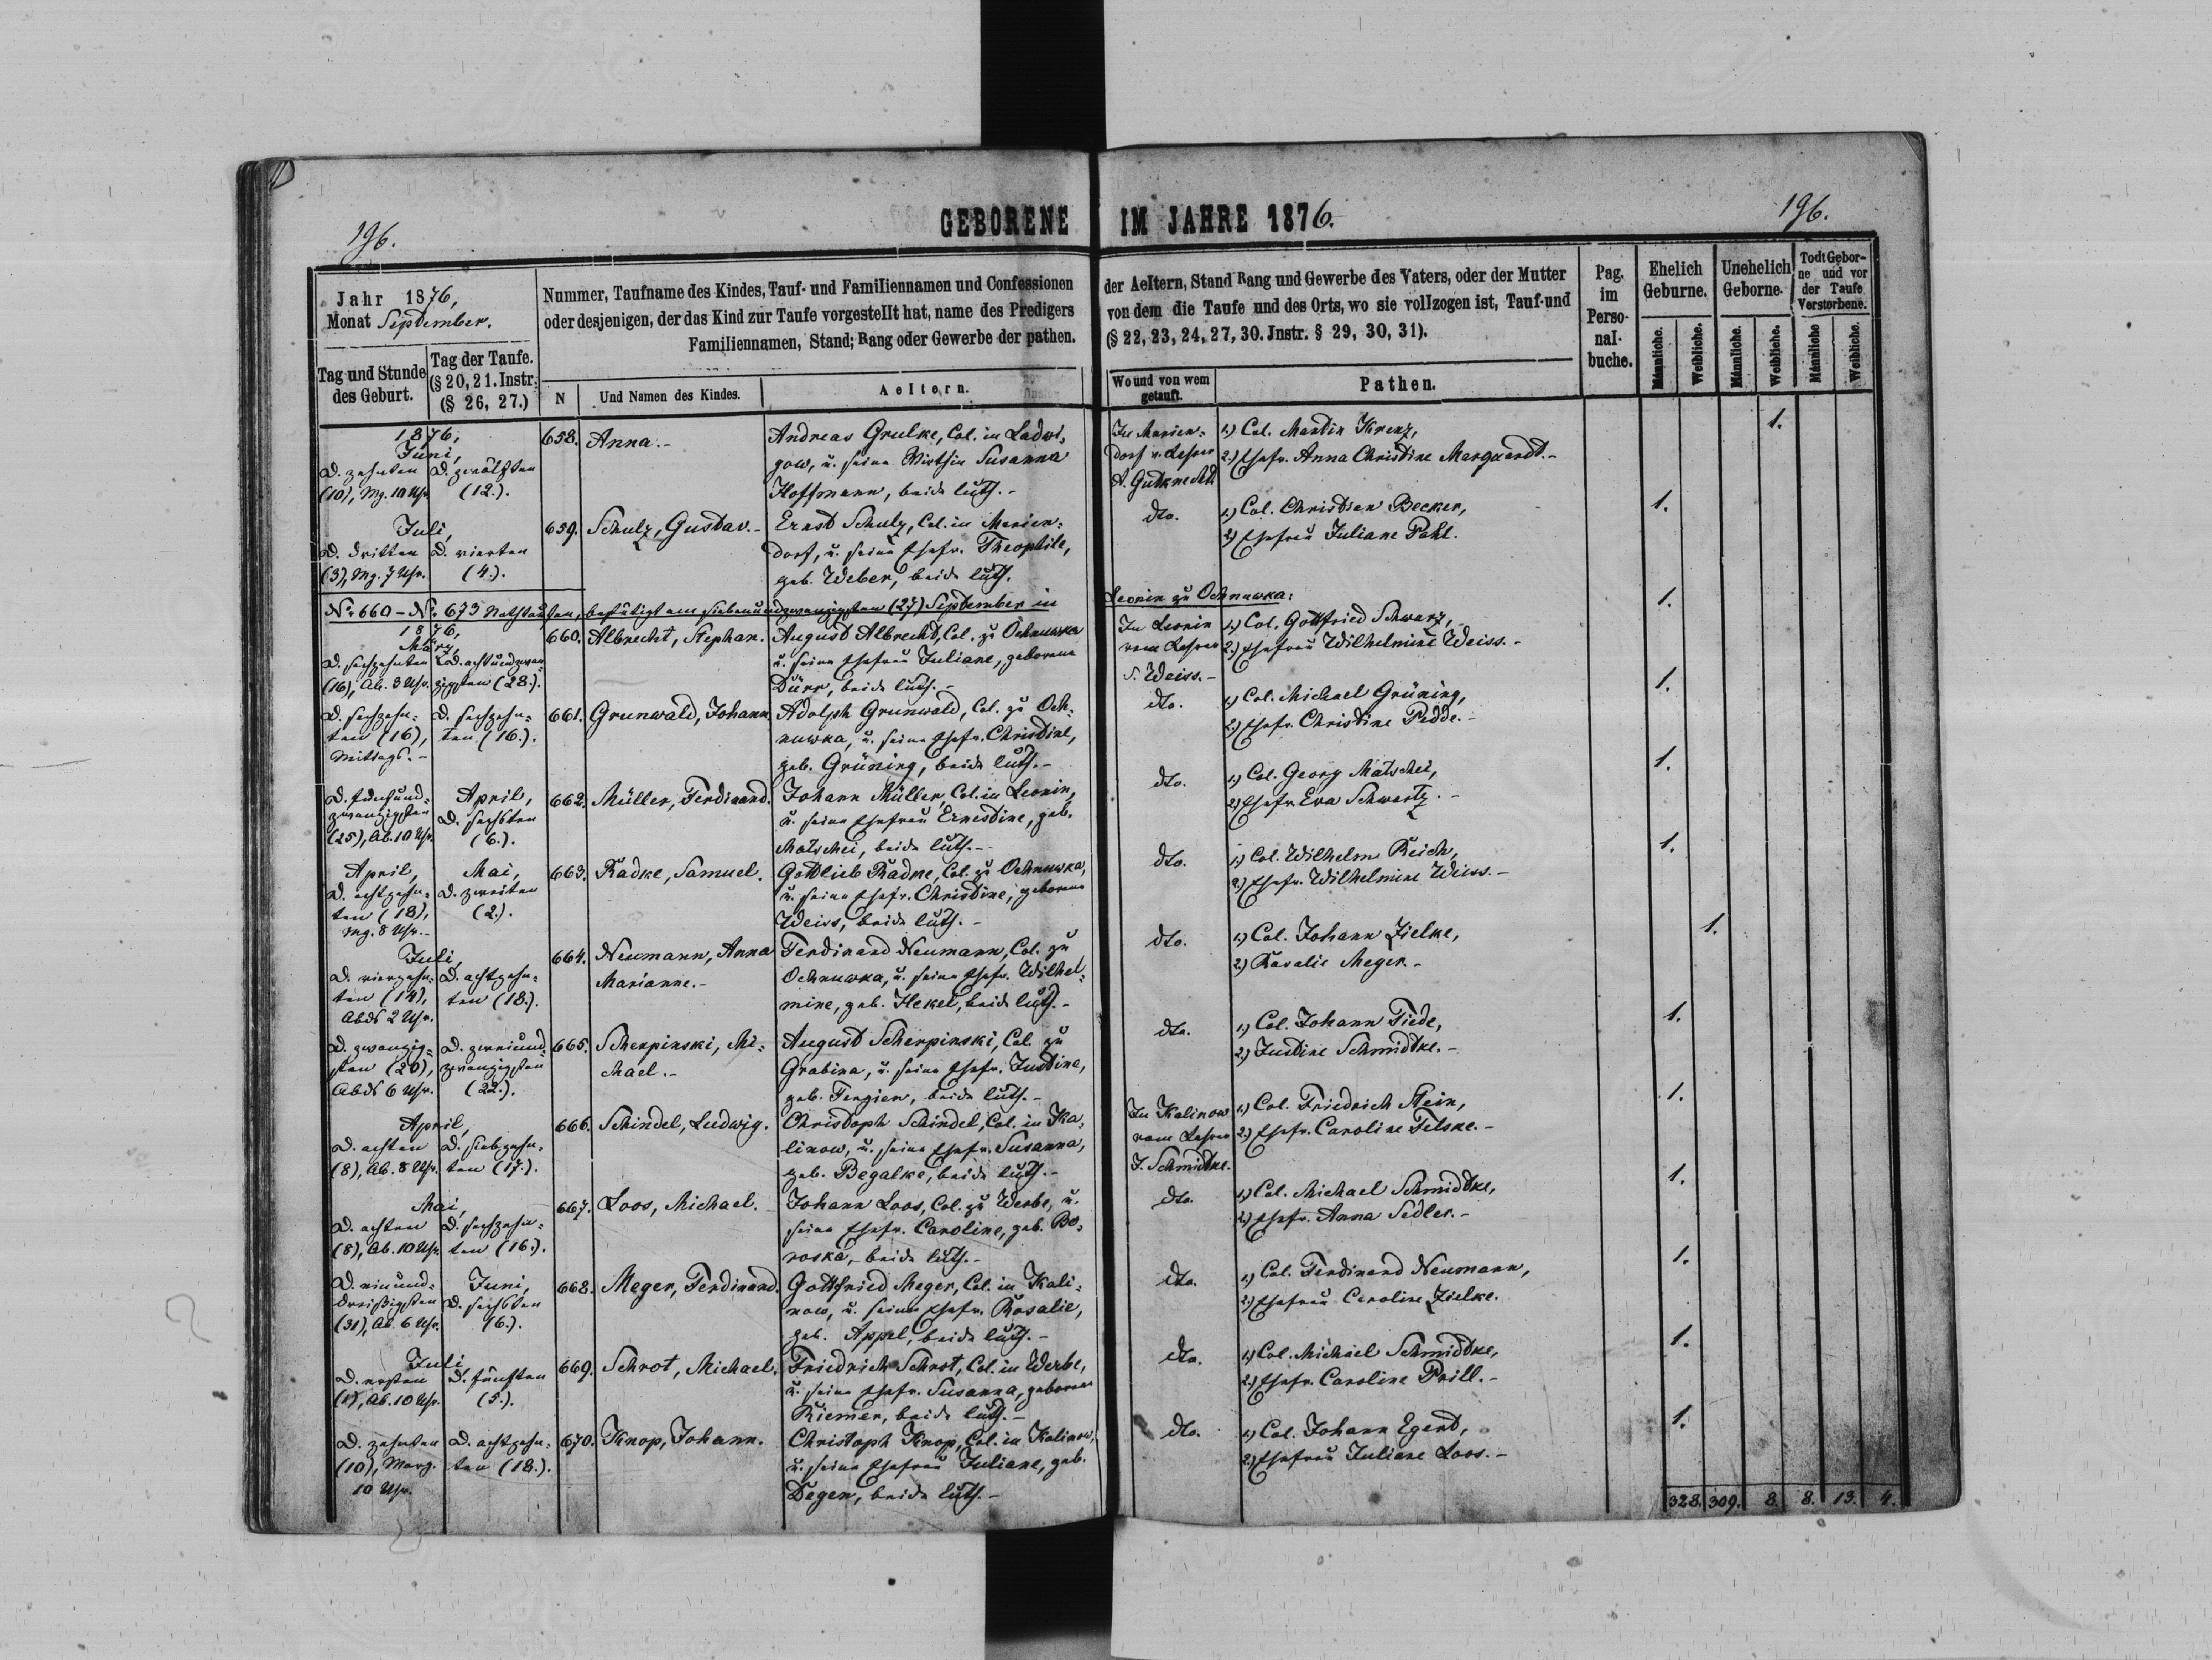 196.
GEBORENE IM JAHRE 1876.
196.
Jahr 1876,
Monat September.
Tag und Stunde
des Geburt.
Tag der Taufe.
(§ 20, 21. Instr.
(§ 26, 27.)
Nummer, Taufname des Kindes, Tauf- und Familiennamen und Confessionen
oder desjenigen, der das Kind zur Taufe vorgestellt hat, name des Predigers
Familiennamen, Stand; Rang oder Gewerbe der pathen.
N
Und Namen des Kindes.
Aeltern.
der Aeltern, Stand Rang und Gewerbe des Vaters, oder der Mutter
von dem die Taufe und des Orts, wo sie vollzogen ist, Tauf-und
(§ 22, 23, 24, 27, 30. Jnstr. § 29, 30, 31).
Wo und von wem
getauft.
Pathen.
Pag.
im
Perso-
nal-
buche.
Ehelich
Geburne.
Unehelich
Geborne.
Todt Gebor-
ne und vor
der Taufe
Verstorbene.
Männliche.
Weibliche.
Männliche.
Weibliche.
Männliche
Weibliche.
1876,
Juni,
D. zehnten
(10), Mg. 10 Uhr.
D. zwölften
(12.).
658. Anna.-
Andreas Grulke, Col. in Ladwi-
gow, u. seine Wirthin Susanna
Hoffmann, beide luth.-
In Marien-
dorf v. Lehrer
A. Gutknecht.
1.) Col. Martin Krenz,
2.) Ehefr. Anna Christine Marquardt.-
1.
Juli,
D. dritten
(3), Mg. 7 Uhr.
D. vierten
(4.).
659. Schulz, Gustav.-
Ernst Schulz, Col. in Marien-
dorf, u. seine Ehefr. Theophile,
geb. Weber, beide luth.
dto.
1.) Col. Christian Becker,
2.) Ehefrau Juliane Pahl.
1.
№ 660 - № 673 Nothtaufen, bestätigt am siebenundzwanzigsten (27) September in Leonin zu Ochnuwka:
1876,
März,
D. sechzehnten
(16), Ab. 8 Uhr.
D. achtundzwan-
zigsten (28.).
660. Albrecht, Stephan.
August Albrecht, Col. zu Ochnuwka
u. seine Ehefrau Juliane, geborene
Dürr, beide luth.-
In Leonin
vom Lehrer
S. Weiss.-
1.) Col. Gottfried Schwarz,
2.) Ehefrau Wilhelmine Weiss.-
1.
D. sechzehn-
ten (16),
Mittags.-
D. sechzehn-
ten (16.).
661. Grunwald, Johann.
Adolph Grunwald, Col. zu Och-
nuwka, u. seine Ehefr. Christine,
geb. Grüning, beide luth.-
dto.
1.) Col. Michael Grüning,
2.) Ehefr. Christine Pedde.-
1.
D. fünfund-
zwanzigsten
(25), Ab. 10 Uhr.
April,
D. sechsten
(6.).
662. Müller, Ferdinand.
Johann Müller, Col. in Leonin,
u. seine Ehefrau Ernestine, geb.
Matschei, beide luth.-
dto.
1.) Col. Georg Matschei,
2.) Ehefr. Eva Schwartz.-
1.
April,
D. achtzehn-
ten (18),
Mg. 8 Uhr.-
Mai,
D. zweiten
(2.).
663. Radke, Samuel.
Gottlieb Radke, Col. zu Ochnuwka,
u. seine Ehefr. Christine, geborene
Weiss, beide luth.-
dto.
1.) Col. Wilhelm Reich,
2.) Ehefr. Wilhelmine Weiss.-
1.
Juli,
D. vierzehn-
ten (14),
Abds 2 Uhr.
D. achtzehn-
ten (18.).
664. Neumann, Anna
Marianne.-
Ferdinand Neumann, Col. zu
Ochnuwka, u. seine Ehefr. Wilhel-
mine, geb. Hekel, beide luth.-
dto.
1.) Col. Johann Zielke,
2.) Rosalie Meger.-
1.
D. zwanzig-
sten (20),
Abds 6 Uhr.
D. zweiund-
zwanzigsten
(22.).
665. Scherpinski, Mi-
chael.-
August Scherpinski, Col. zu
Grabina, u. seine Ehefr. Justine,
geb. beide luth.-
dto.
1.) Col. Johann Tiede,
2.) Justine Schmidtke.-
1.
April,
D. achten
(8), Ab. 8 Uhr.
D. siebzehn-
ten (17.).
666. Schindel, Ludwig.
Christoph Schindel, Col. in Ka-
linow, u. seine Ehefr. Susanna,
geb. Begalke, beide luth.-
In Kalinow
vom Lehrer
J. Schmidtke.
1.) Col. Friedrich Stein,
2.) Ehefr. Caroline Felske.-
1.
Mai,
D. achten
(8), Ab. 10 Uhr.
D. sechzehn-
ten (16.).
667. Loos, Michael.
Johann Loos, Col. zu Werbe, u.
seine Ehefr. Caroline, geb. Bo-
roska, - beide luth.-
dto.
1.) Col. Michael Schmidtke,
2.) Ehefr. Anna Sedler.-
1.
D. einund-
dreißigsten
(31), Ab. 6 Uhr.
Juni,
D. sechsten
(6.).
668. Meger, Ferdinand.
Gottfried Meger, Col. in Kali-
now, u. seine Ehefr. Rosalie,
geb. Appel, beide luth.-
dto.
1.) Col. Ferdinand Neumann,
2.) Ehefrau Caroline Zielke.
1.
Juli,
D. ersten
(1), Ab. 10 Uhr.
D. fünften
(5.).
669. Schrot, Michael.
Friedrich Schrot, Col. in Werbe,
u. seine Ehefr. Susanna, geborene
Riemer, beide luth.-
dto.
1.) Col. Michael Schmidtke,
2.) Ehefr. Caroline Prill.-
1.
D. zehnten
(10), Morg.
10 Uhr.
D. achtzehn-
ten (18.).
670. Knop, Johann.
Christoph Knop, Col. in Kalinow,
u. seine Ehefrau Juliane, geb.
Degen, beide luth.-
dto.
1.) Col. Johann Egert,
2.) Ehefrau Juliane Loos.-
1.
328. 309. 8. 8. 13. 4.